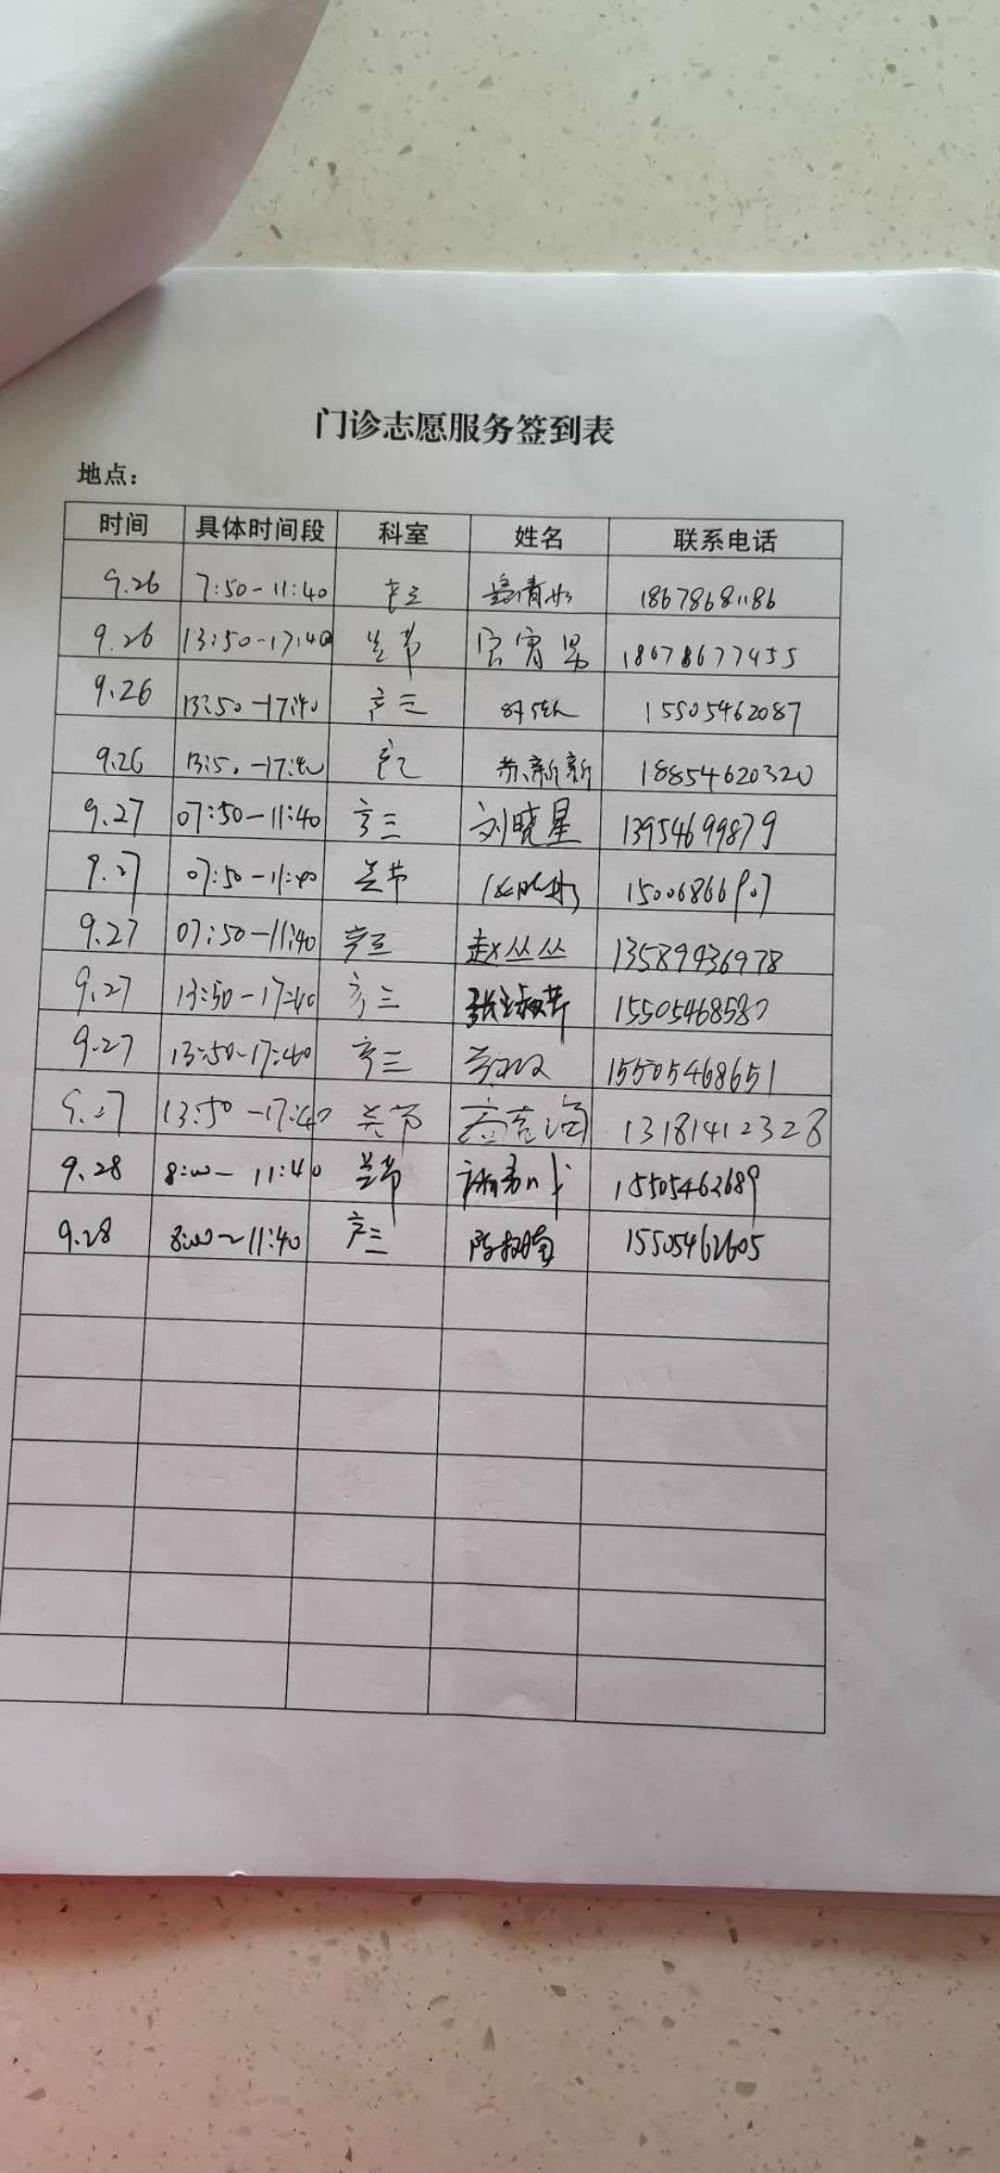 门诊志愿服务签到表
地点：
时间 具体时间段 科室 姓名 联系电话
9.26 7:50-11:40 产三 18678681186
9.26 13:50-17:40 关节 18678677455
9.26 13:50-17:40 产三 15505462087
9.26 13:50-17:40 苏新新 18854620320
9.27 07:50-11:40 产三 刘晓星 13954699879
9.27 07:50-11:40 关节 15006866907
9.27 07:50-11:40 产三 赵丛丛 13589936978
9.27 13:50-17:40 产三 15505468580
9.27 13:50-17:40 产三 15505468651
9.27 13:50-17:40 关节 13181412328
9.28 8:00-11:40 关节 15505462689
9.28 8:00~11:40 产三 15505462605